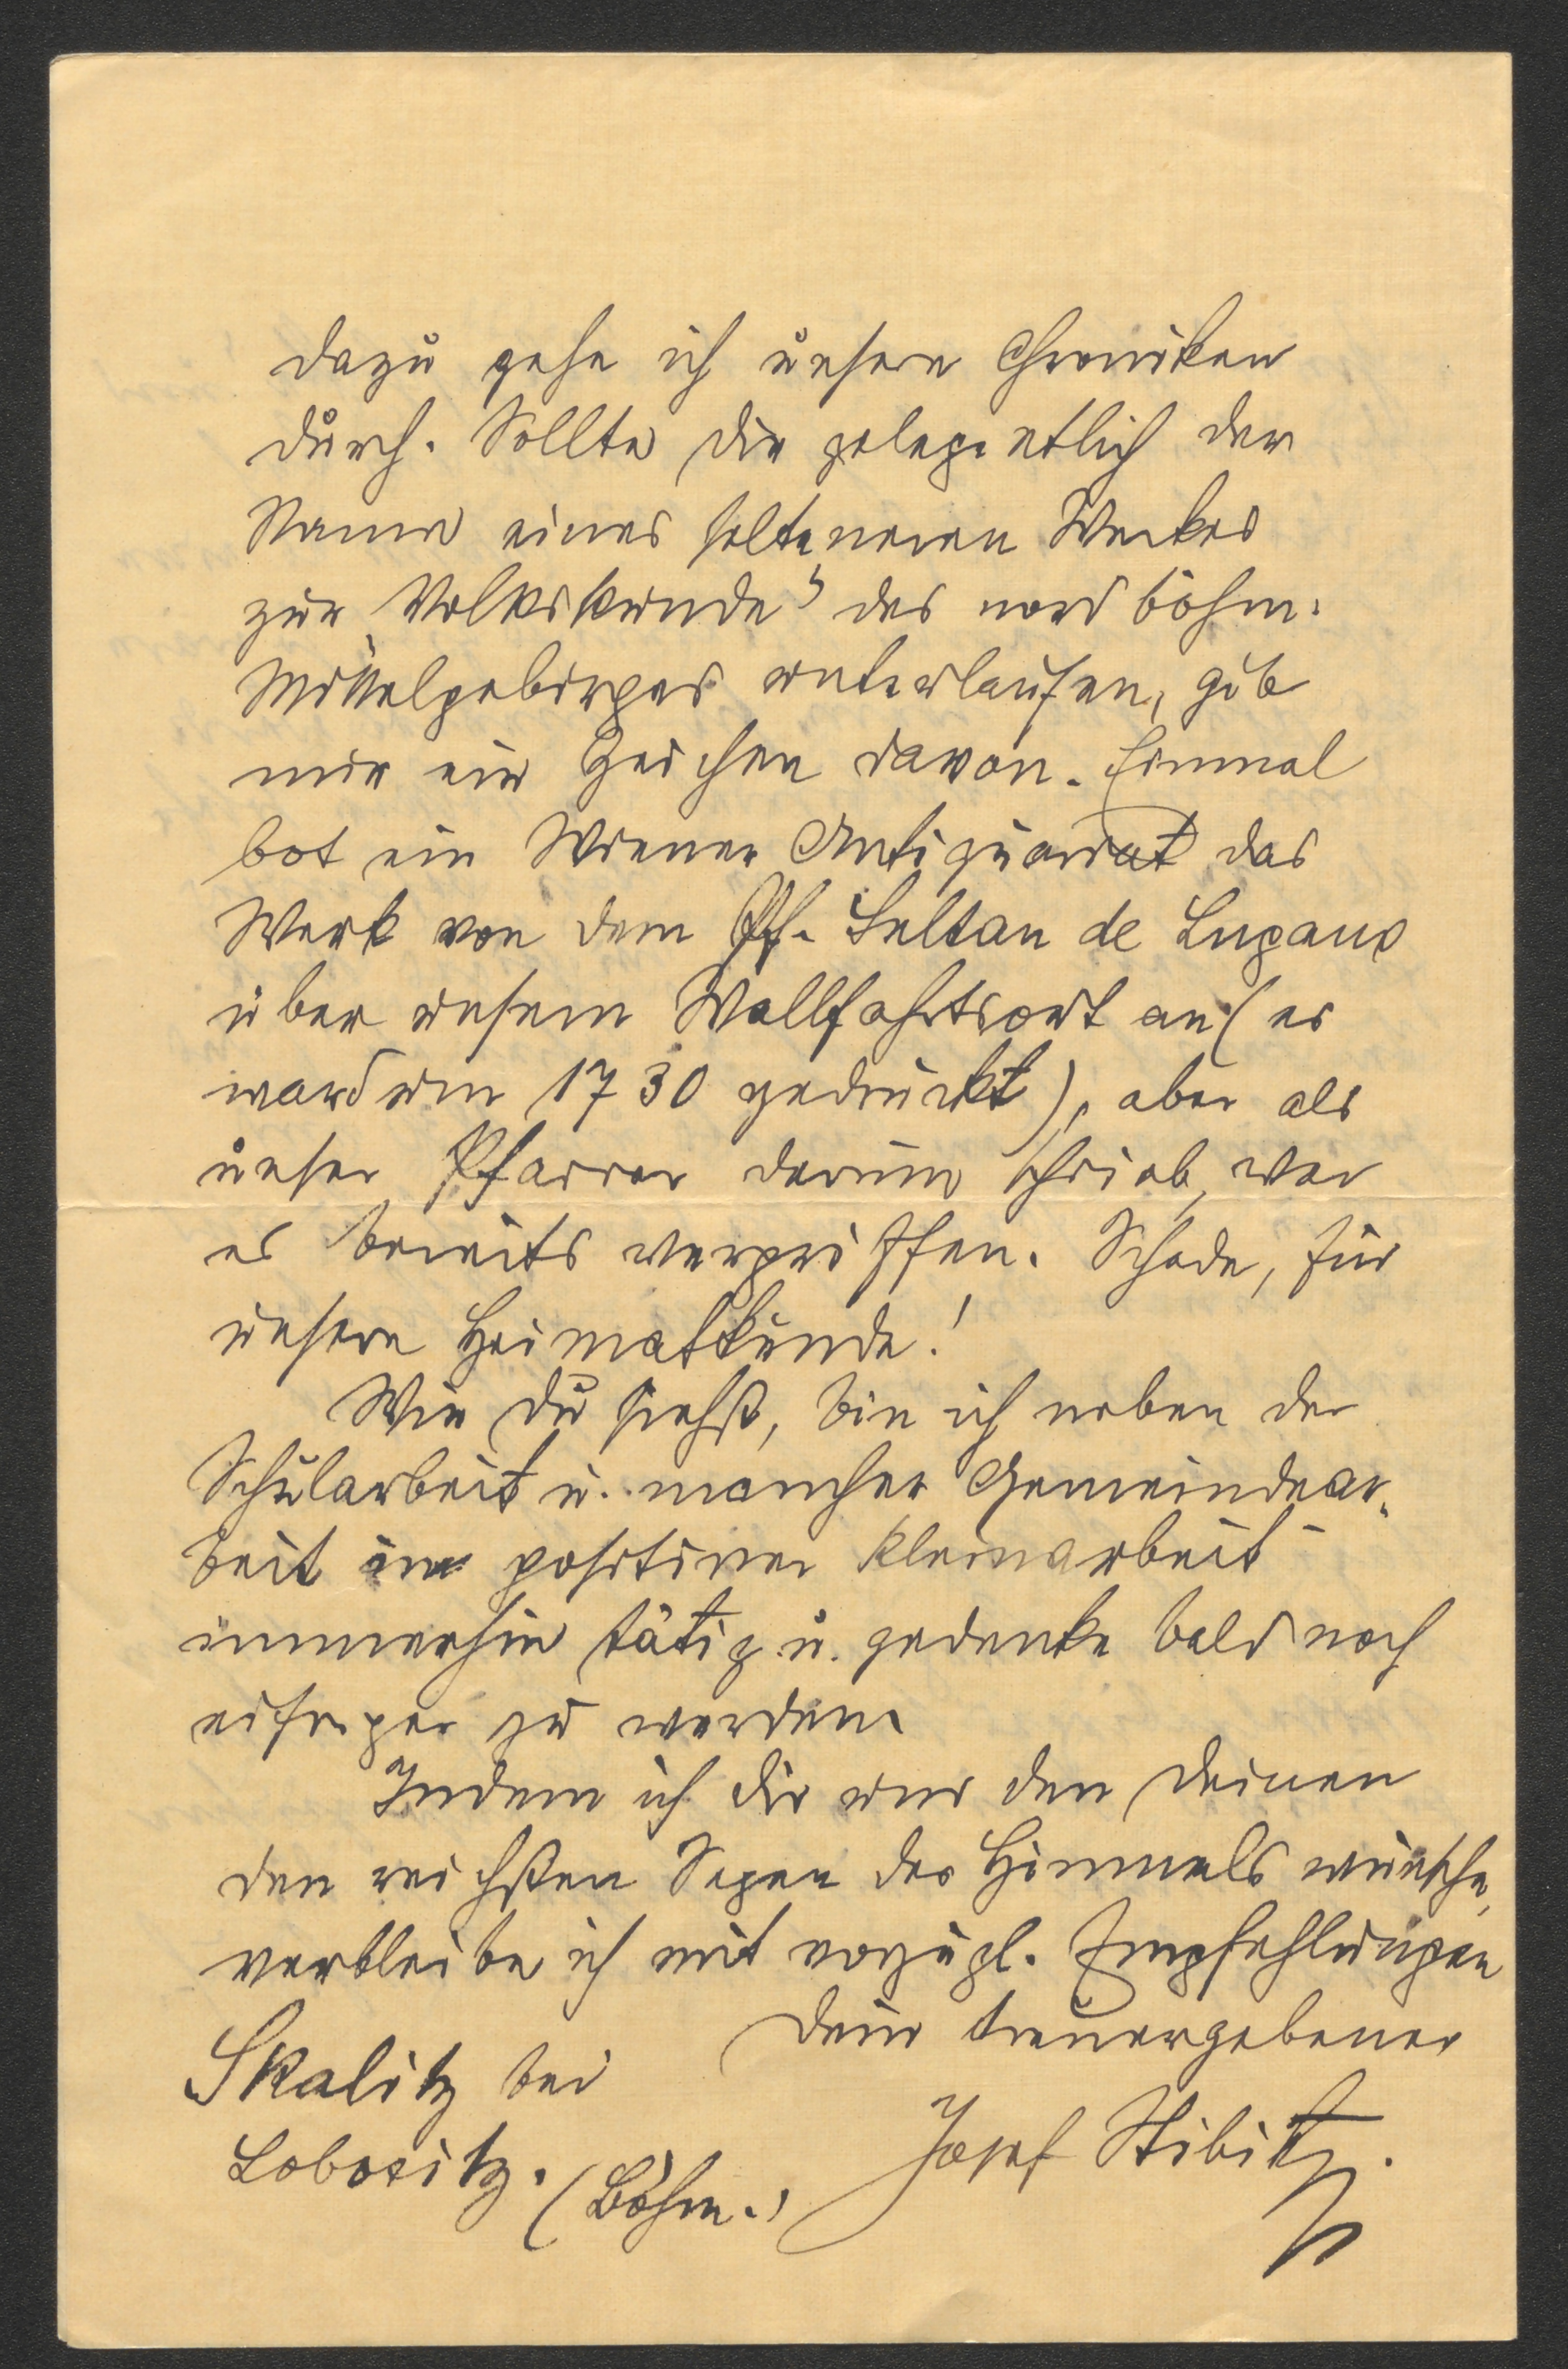 dazu gehe ich unsere Chroniken
durch. Sollte Dir gelegentlich der
Name eines selteneren Werkes
zur Volkskunde des nordböhm.
Mittelgebirges unterlaufen, gib
mir ein Zeichen davon. Einmal
bot ein Wiener Antiquariat das
Werk von dem Pf. Seltan de Lugano
über unsern Wallfahrtsort an (es
ward um 1730 gedruckt), aber als
unser Pfarrer darum schrieb, war
es bereits vergriffen. Schade, für
unsere Heimatkunde!
Wie Du siehst, bin ich neben der
Schularbeit u. mancher Gemeindear-
beit in positiver Kleinarbeit
immerhin tätig u. gedenke bald noch
eifriger zu werden.
Indem ich Dir und den Deinen
den reichsten Segen des Himmels wünsche,
verbleibe ich mit vorzügl. Empfehlungen
Dein treuergebener
Skalitz bei
Josef Stibitz.
Lobositz. (Böhm.)